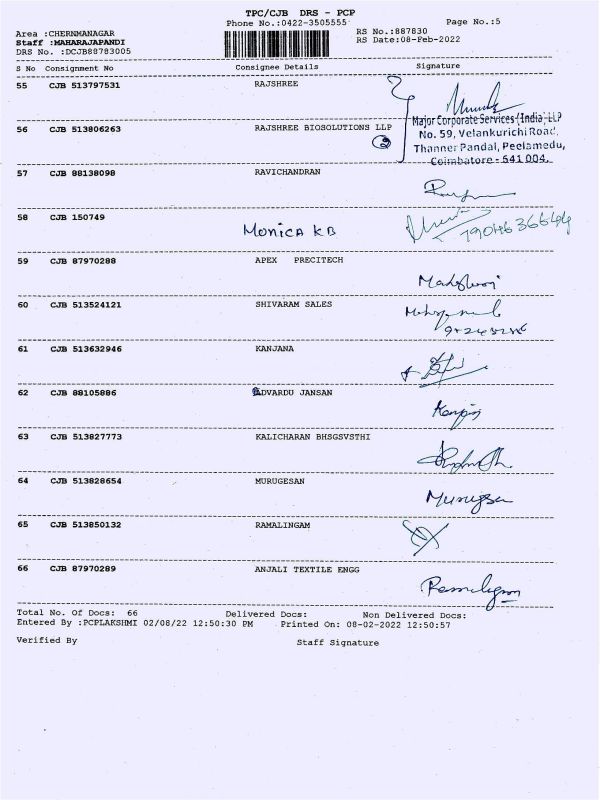 TPC/CJB DRS - PCP
Phone No.:0422-3505555 Page No.:5
Area :CHERNMANAGAR RS No.:887830
Staff :MAHARAJAPANDI RS Date:08-Feb-2022
DRS No. :DCJB88783005
S No Consignment No Consignee Details Signature
55 CJB 513797531 RAJSHREE
Major Corporate Services (India) LLP
56 CJB 513806263 RAJSHREE BIOSOLUTIONS LLP No. 59, Velankurichi Road,
Thanner Pandal, Peelamedu,
Coimbatore - 641 004.
57 CJB 88138098 RAVICHANDRAN
58 CJB 150749 Monica KB
59 CJB 87970288 APEX PRECITECH
60 CJB 513524121 SHIVARAM SALES
61 CJB 513632946 KANJANA
62 CJB 88105886 EDVARDU JANSAN
63 CJB 513827773 KALICHARAN BHSGSVSTHI
64 CJB 513828654 MURUGESAN
65 CJB 513850132 RAMALINGAM
66 CJB 87970289 ANJALI TEXTILE ENGG
Total No. Of Docs: 66 Delivered Docs: Non Delivered Docs:
Entered By :PCPLAKSHMI 02/08/22 12:50:30 PM Printed On: 08-02-2022 12:50:57
Verified By Staff Signature